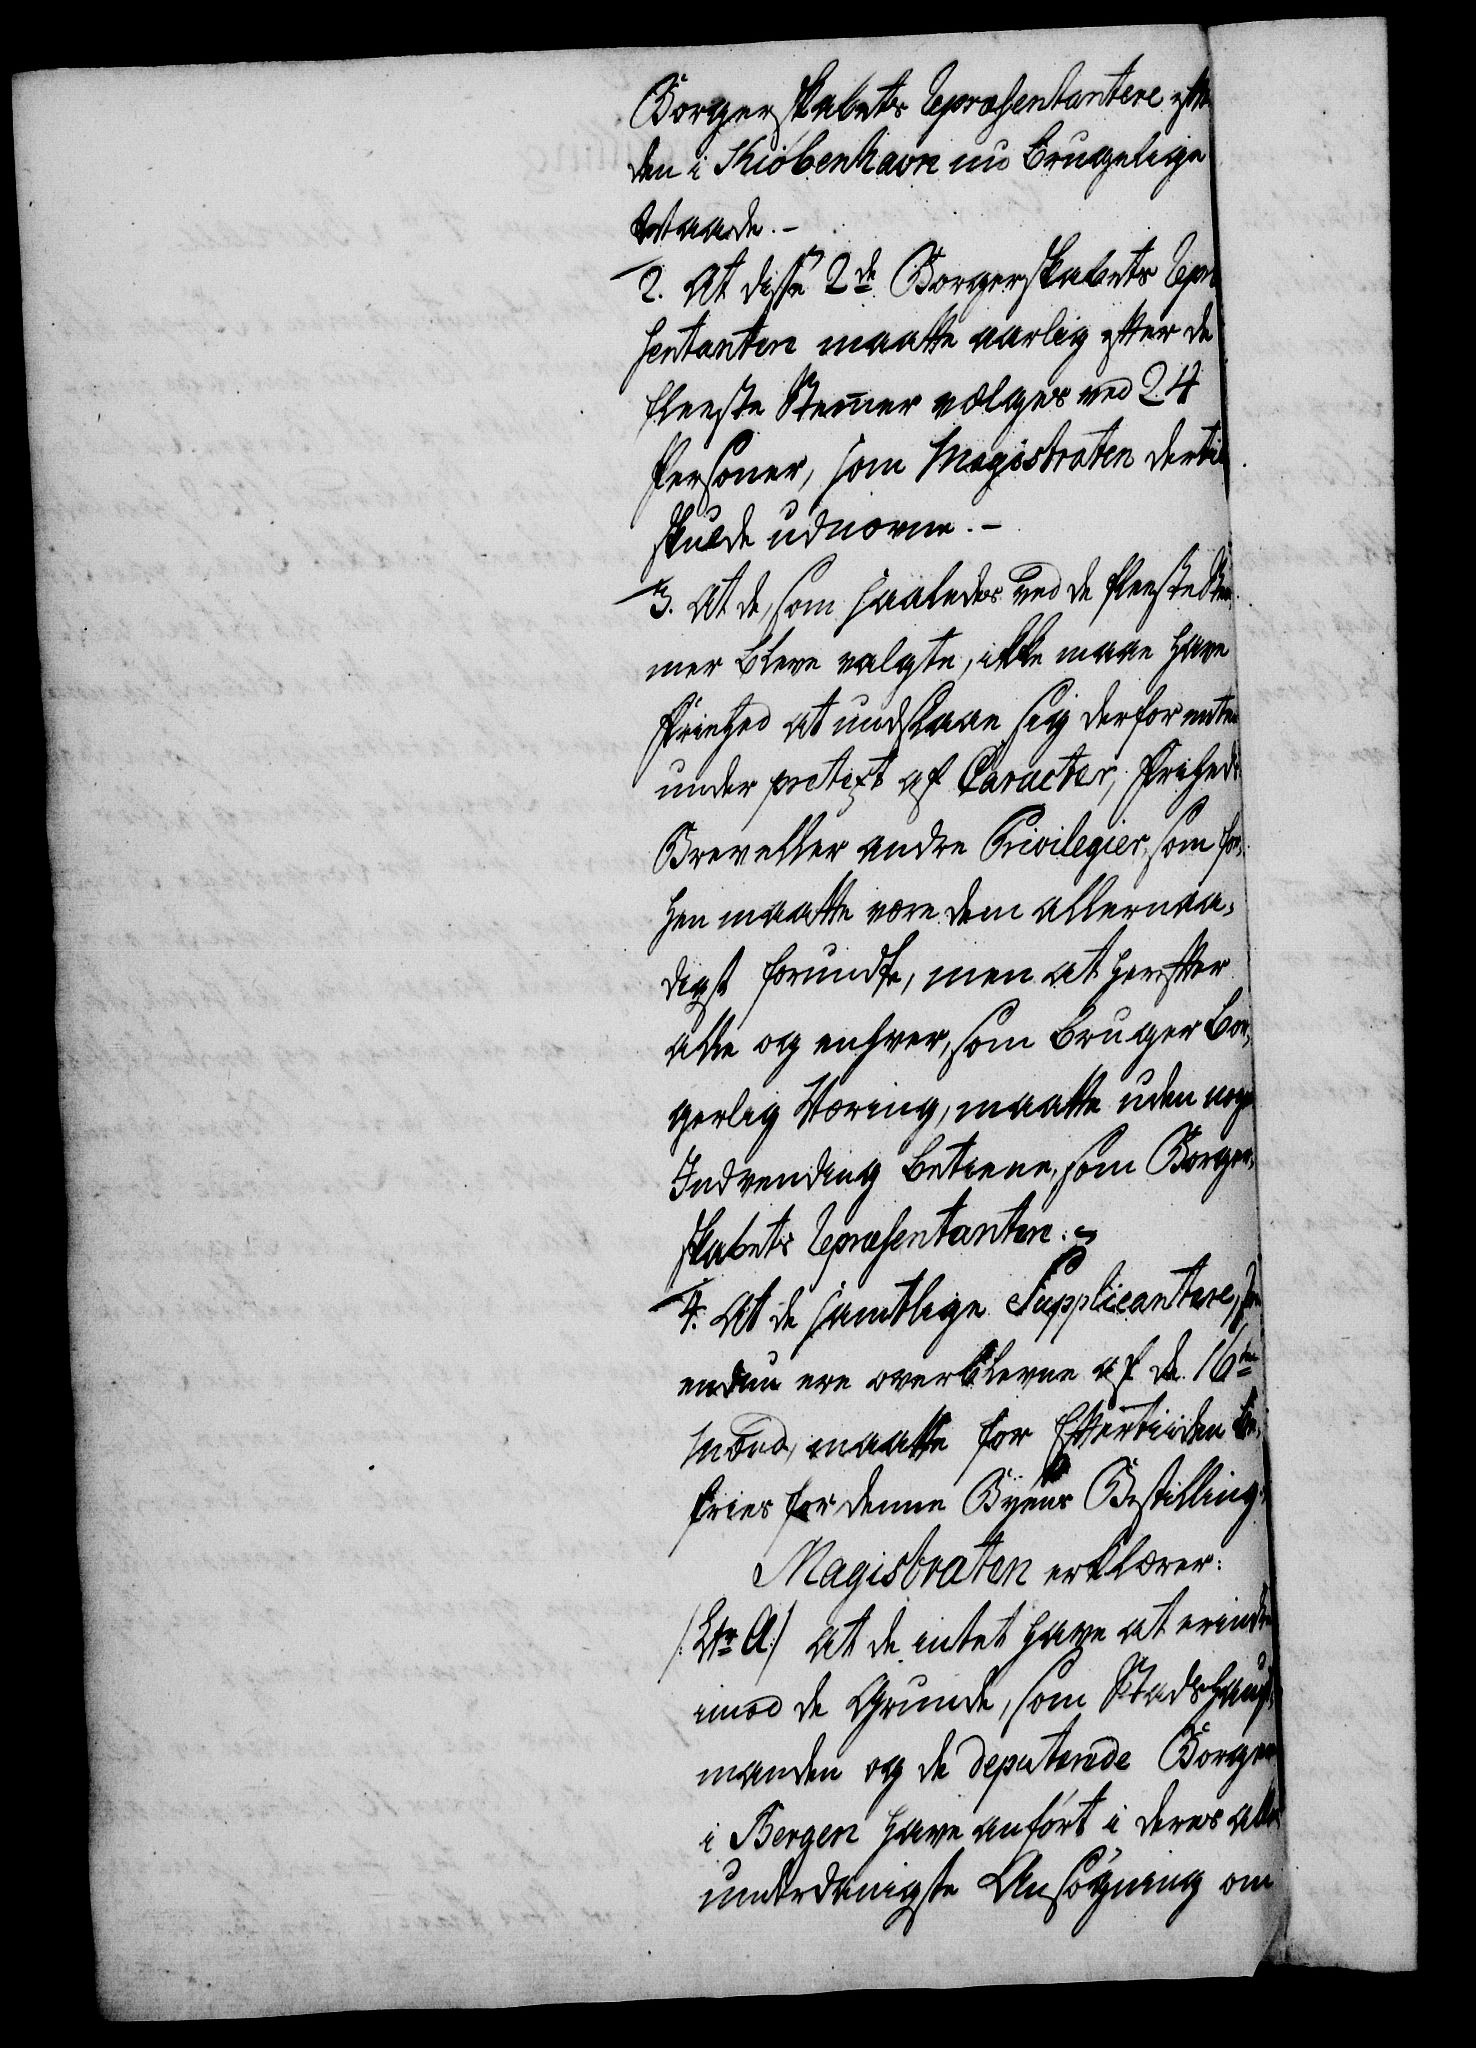 Borgerskabets Repræsentantere efter
den i Kiøbenhavn nu brugelige
Maade. -
2. At disse 2de Borgerskabets Repræ
sentantere maatte aarlig efter de
fleeste Stemer vælges ved 24
Personer, som Magistraten dertil
skulde udnævne. -
3. At de, som saaledes ved de fleeste Stem,
mer bleve valgte, ikke maae have
Friehed at undslaae sig derfor enten
under prætext af Caracter, Friheds
Brev eller andre Privilegier, som for,
hen maatte være dem allernaa,
digst forundte, men at herefter
alle og enhver, som bruger bor,
gerlig Næring, maatte uden nogen
Indvending betiene, som Borger,
skabets Repræsentantere. -
4. At de samtlige Supplicantere, som
endnu ere overblevne af de 16ten
Mænd, maatte for Eftertiiden be,
fries for denne Byens Bestilling.
Magistraten erklærer:
/: Ltr A:/ at de intet have at erindre
imod de Grunde, som Stadshaupt,
manden og de deputerede Borgere
i Bergen have anført i deres aller
underdanigste Ansøgning om